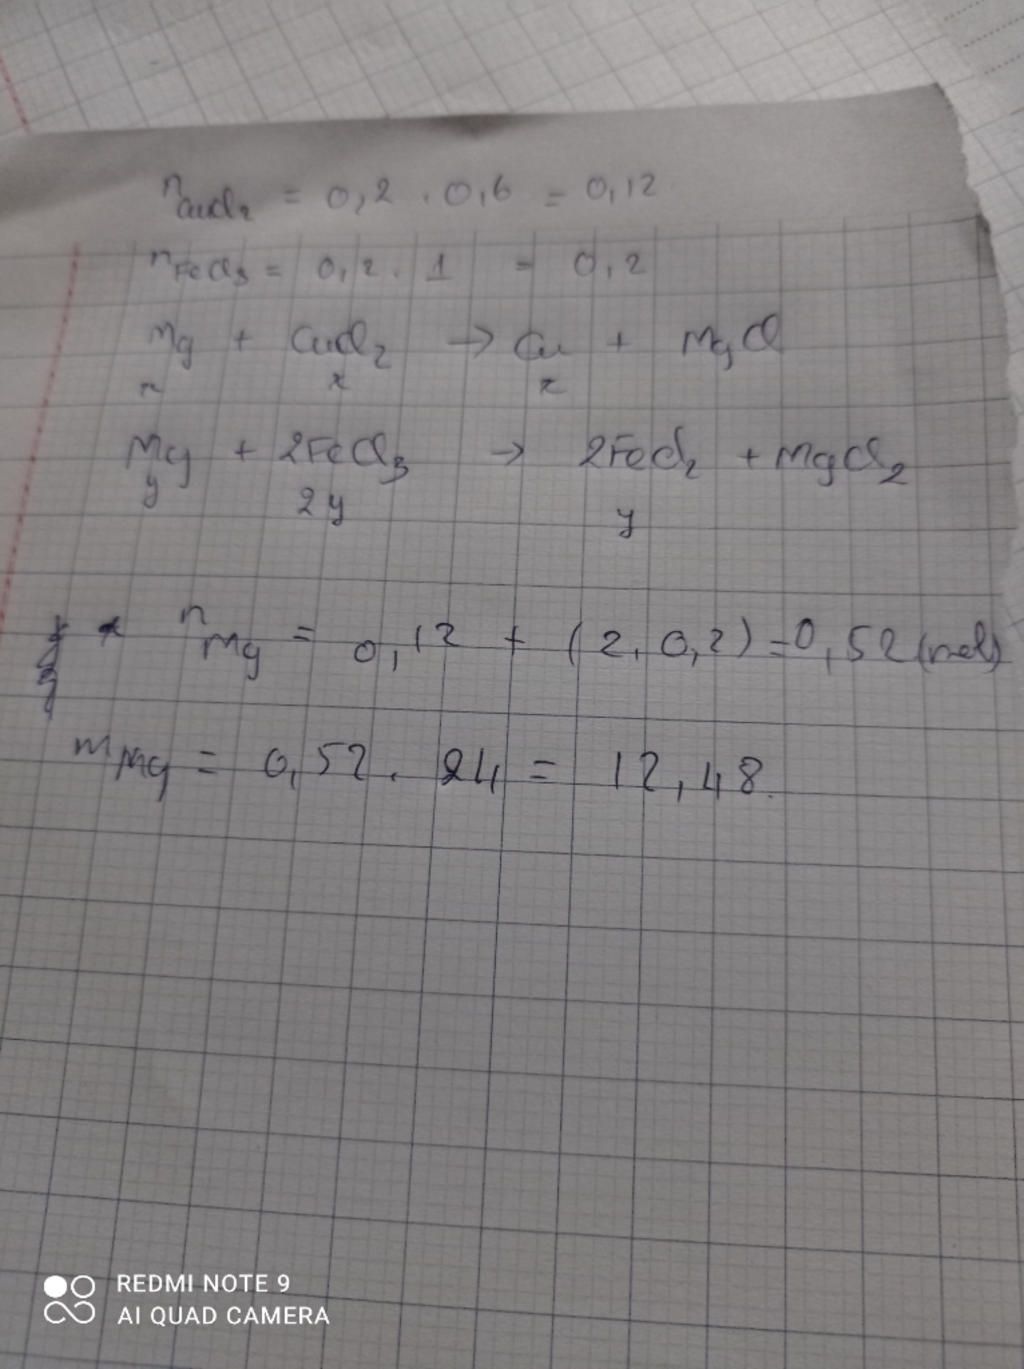 n CuCl2 = 0,2 . 0,6 = 0,12
n FeCl3 = 0,2 . 1 = 0,2
Mg + CuCl2 → Cu + MgCl
x x x
Mg + 2FeCl3 → 2FeCl2 + MgCl2
y 2y y
n Mg = 0,12 + (2.0,2) = 0,52 (mol)
m Mg = 0,52 . 24 = 12,48.
REDMI NOTE 9
AI QUAD CAMERA